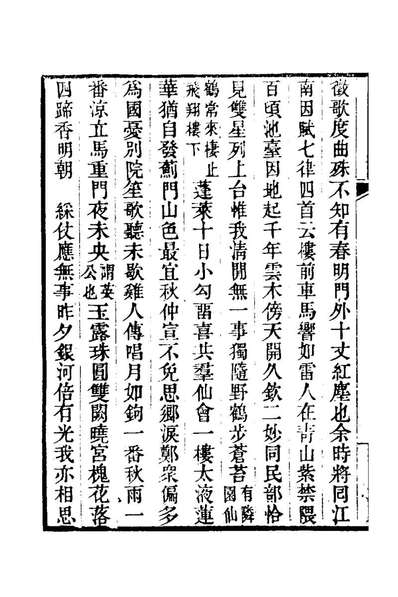 徵歌度曲殊不知有春明門外十丈紅塵也余時將囘江
南因賦七律四首云樓前車馬響如雷人在靑山紫禁隈
百頃池臺因地起千年雲木傍天開久欽二妙同民部恰
見雙星列上台惟我淸閒無一事獨隨野鶴步蒼苔有隣園仙
鶴常來棲止飛翔樓下蓬萊十日小勾畱喜共羣仙會一樓太液蓮
華猶自發薊門山色最宜秋仲宣不免思鄉淚鄭衆偏多
爲國憂別院笙歌聽未歇雞人傳唱月如鉤一番秋雨一
番涼立馬重門夜未央謂英公也玉露珠圓雙闕曉宮槐花落
四蹄香明朝 綵仗應無事昨夕銀河倍有光我亦相思